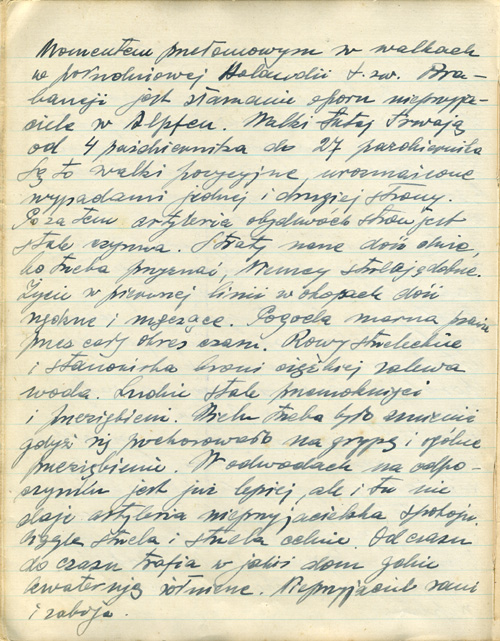 Momentem przełomowym w walkach
w południowej Holandii t.zw. Bra-
bancji jest złamanie oporu nieprzyja-
ciela w Alpfen. Walki tutaj trwają
od 4 października do 27 października
Są to walki pozycyjne, urozmaicone
wypadami jednej i drugiej strony.
Poza tem artyleria obydwóch stron jest
stale czynna. Straty nasze dość
bo trzeba przyznać, Niemcy strzelają dobrze.
Życie w pierwszej linii w okopach dość
nędzne i męczące. Pogoda marna prawie
przez cały okres czasu. Rowy strzeleckie
i stanowiska broni ciężkiej zalewa
woda. Ludzie stale przemoknięci
i przeziębieni. Wielu trzeba było zmienić
gdyż się pochorowało na grypę i ogólne
przeziębienie. W odwodach na odpo-
czynku jest już lepiej, ale i tu nie
daje artyleria nieprzyjacielska spokoju.
Ciągle strzela i strzela celnie. Od czasu
do czasu trafia w jakiś dom gdzie
kwaterują żołnierze. Nieprzyjaciel rani
i zabija.